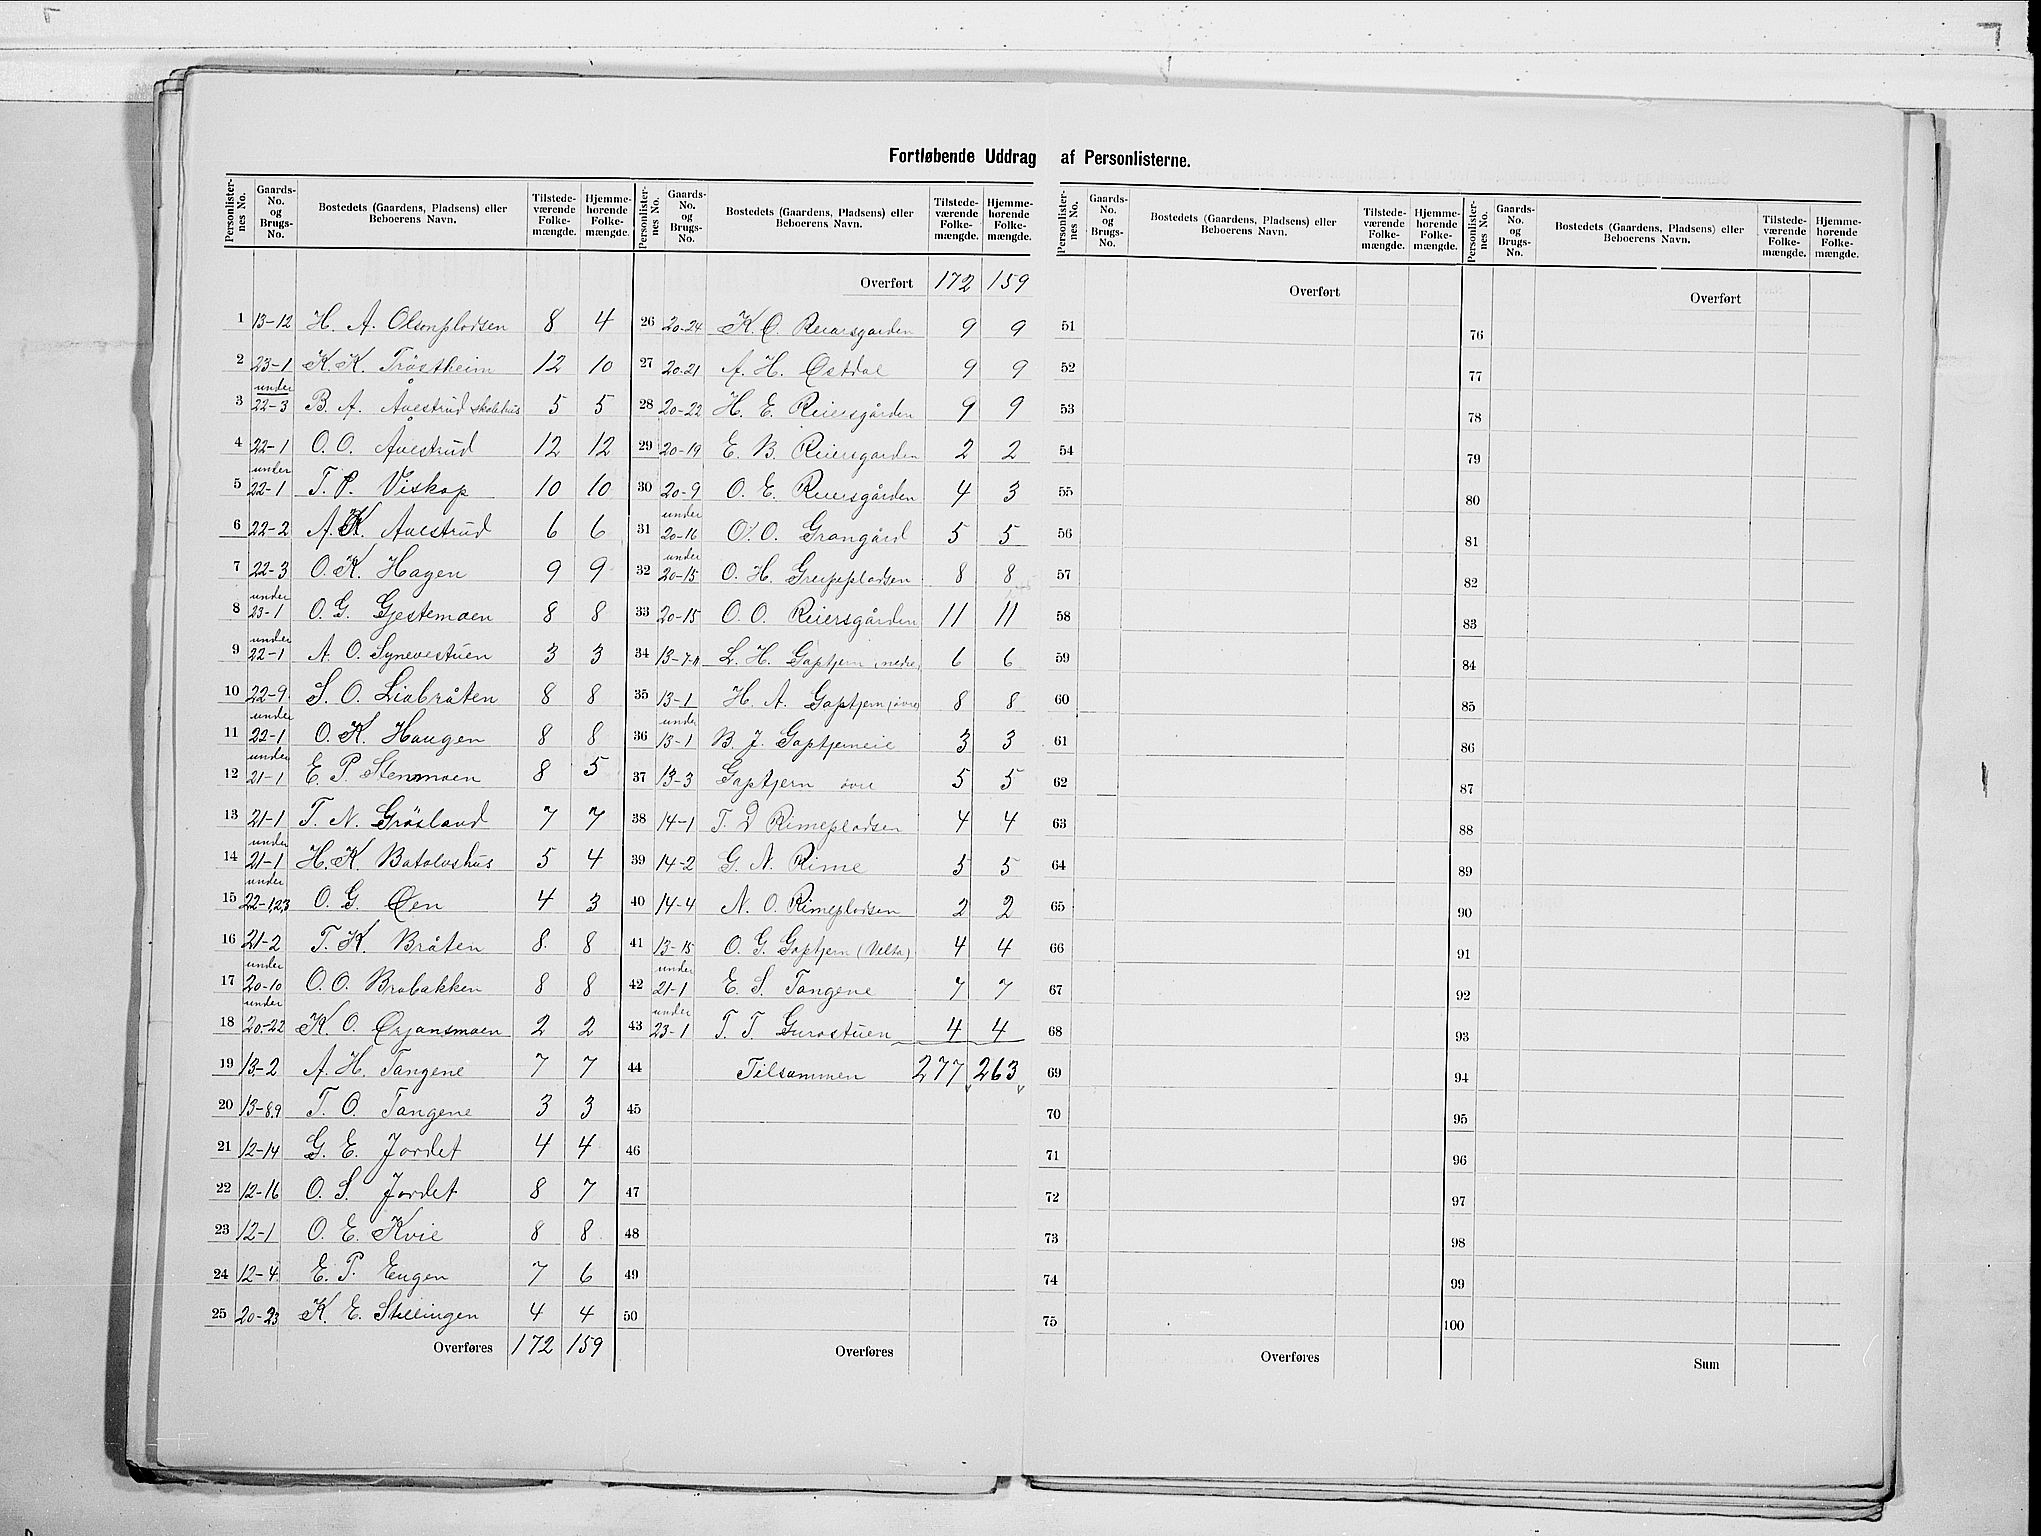 Fortløbende Uddrag af Personlisterne.
Personlister-nes No. Gaards-No. og Brugs-No. Bostedets (Gaardens, Pladsens) eller Beboerens Navn. Tilstede-værende Folke-mængde. Hjemme-hørende Folke-mængde.
1 13-12 H. A. Olsenpladsen 8 4
2 23-1 K. K. Tröstheim 12 10
3 under 22-3 B. A. Åvestrud skolehus 5 5
4 22-1 O. O. Åvestrud 12 12
5 under 22-1 T. P. Viskop 10 10
6 22-2 A. K. Avestrud 6 6
7 22-3 O. K. Hagen 9 9
8 under 23-1 O. G. Gjestemoen 8 8
9 under 22-1 A. O. Synevestuen 3 3
10 22-9 S. O. Liabråten 8 8
11 under 22-1 O. K. Haugen 8 8
12 under 21-1 E. P. Stenmoen 8 5
13 21-1 T. N. Gröslaud 7 7
14 under 21-1 H. K. Batolvshus 5 4
15 under 22-1,2,3 O. G. Øen 4 3
16 21-2 T. K. Bråten 8 8
17 under 20-10 O. O. Brabakken 8 8
18 under 20-22 K. O. Ørjansmoen 2 2
19 13-2 A. H. Tangene 7 7
20 13-8,9 T. O. Tangene 3 3
21 12-14 G. E. Jordet 4 4
22 12-16 O. S. Jordet 8 7
23 12-1 O. E. Kvie 8 8
24 12-4 E. P. Eugen 7 6
25 20-23 K. E. Stillingen 4 4
Overføres 172 159
Personlister-nes No. Gaards-No. og Brugs-No. Bostedets (Gaardens, Pladsens) eller Beboerens Navn. Tilstede-værende Folke-mængde. Hjemme-hørende Folke-mængde.
Overført 172 159
26 20-24 K. O. Reiarsgarden 9 9
27 20-21 A. H. Østdal 9 9
28 20-22 H. E. Reiersgården 9 9
29 20-19 E. B. Reiersgarden 2 2
30 20-9 O. E. Reiersgården 4 3
31 under 20-16 O. O. Grangård 5 5
32 under 20-15 O. H. Greipepladsen 8 8
33 20-15 O. O. Reiersgården 11 11
34 13-7,11 L. H. Gaptjern nedre 6 6
35 13-1 H. A. Gaptjern (øvre) 8 8
36 under 13-1 B. J. Gaptjerneie 3 3
37 13-3 Gaptjern øvre 5 5
38 14-1 T. Rimepladsen 4 4
39 14-2 G. N. Rime 5 5
40 14-4 N. O. Rimepladsen 2 2
41 13-15 O. G. Gaptjern (Velta) 4 4
42 under 21-1 E. S. Tangene 7 7
43 under 23-1 T. T. Gurostuen 4 4
44 Tilsammen 277 263
45
46
47
48
49
50
Overføres
Personlister-nes No. Gaards-No. og Brugs-No. Bostedets (Gaardens, Pladsens) eller Beboerens Navn. Tilstede-værende Folke-mængde. Hjemme-hørende Folke-mængde.
Overført
51
52
53
54
55
56
57
58
59
60
61
62
63
64
65
66
67
68
69
70
71
72
73
74
75
Overføres
Personlister-nes No. Gaards-No. og Brugs-No. Bostedets (Gaardens, Pladsens) eller Beboerens Navn. Tilstede-værende Folke-mængde. Hjemme-hørende Folke-mængde.
Overført
76
77
78
79
80
81
82
83
84
85
86
87
88
89
90
91
92
93
94
95
96
97
98
99
100
Sum